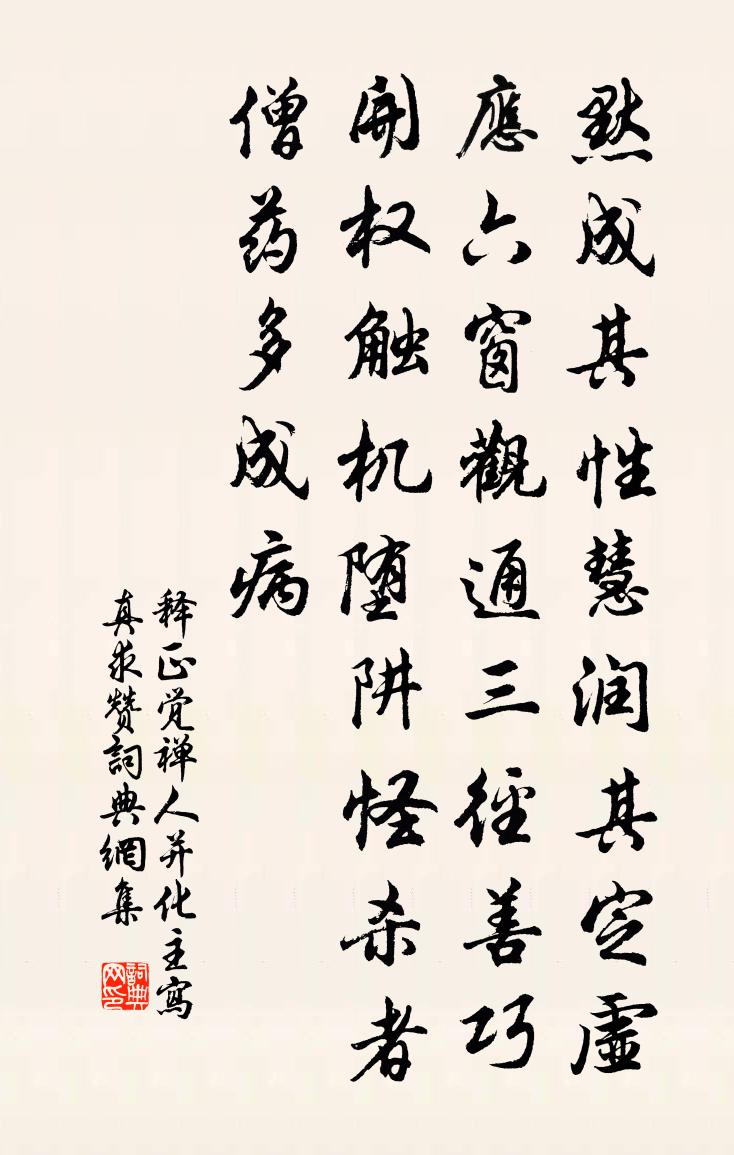 默成其性慧润其定虚
應六窗觀通三徑善巧
開权触机堕阱怪杀者
僧药多成病
释正觉禅人并化主寫
真求赞詞典網集
詞典网印